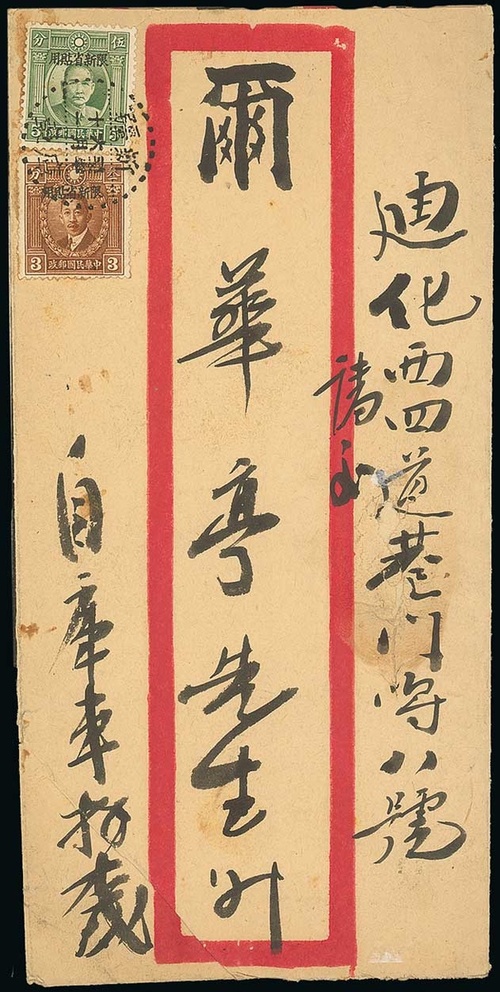 迪化西四道巷門牌八號
請交
爾華亭先生
自庫車
伍分
限新省貼用
5
中華民國郵政
叁分
限新省貼用
3 中華民國郵政 3